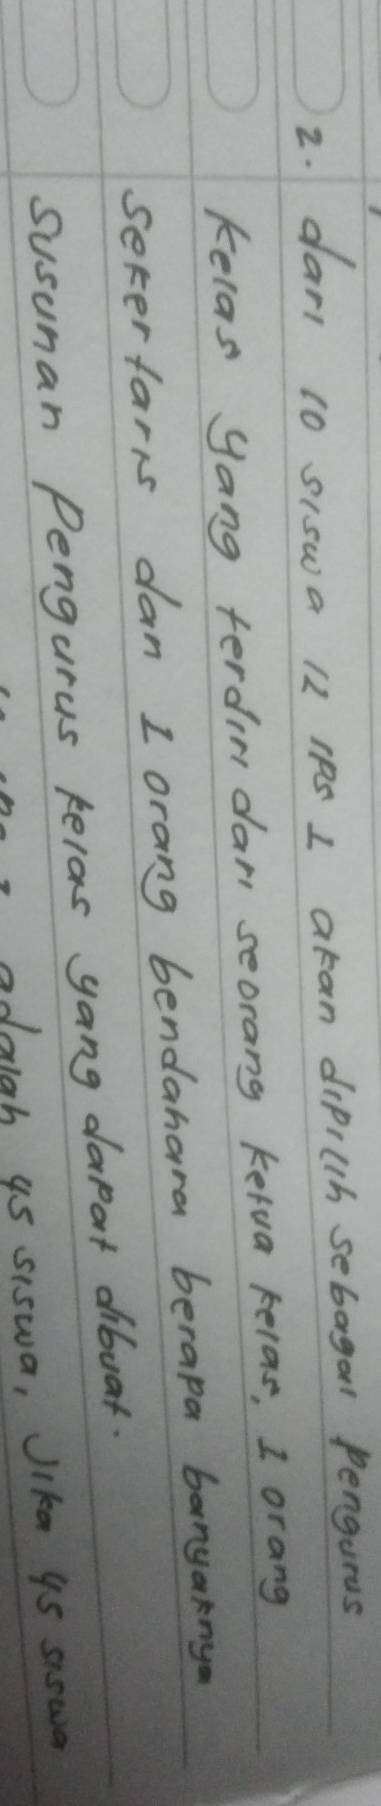 2. dari 10 siswa 12 IPS 1 akan dipilih sebagai pengurus
kelas yang terdiri dari seorang ketua kelas, 1 orang
sekertaris dan 1 orang bendahara berapa banyaknya
susunan pengurus kelas yang dapat dibuat.
adalah 45 siswa, Jika 45 siswa